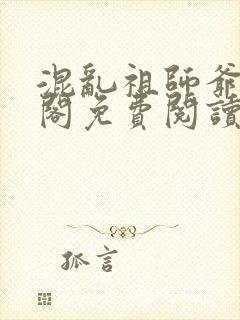 混亂祖師爺
閣免費閱讀
孤言